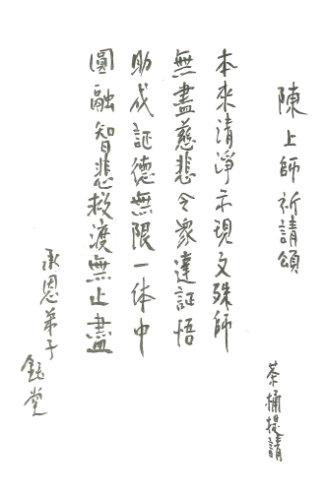 陳上師祈請頌
茶桶提請
本來清淨示現文殊師
無盡慈悲令眾達証悟
助成証德無限一体中
圓融智悲救渡無止盡
承恩弟子
鈺堂